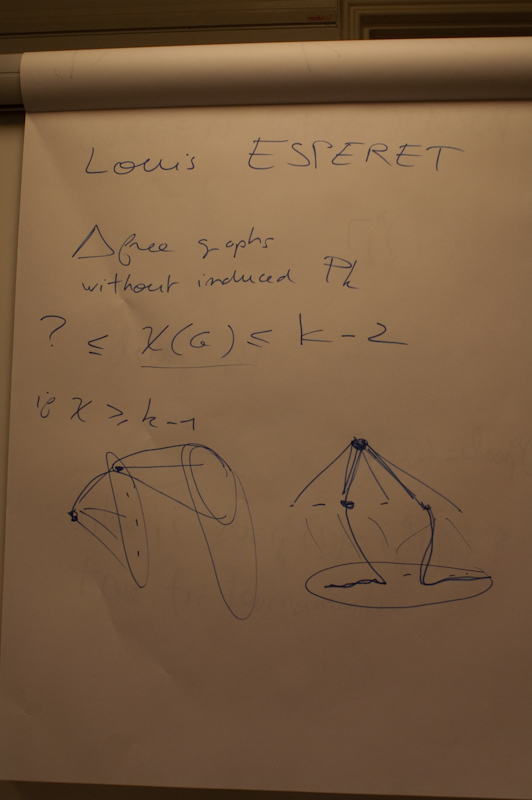 Louis ESPERET
Δ free graphs
without induced Pk
? ≤ χ(G) ≤ k-2
if χ ≥ k-1